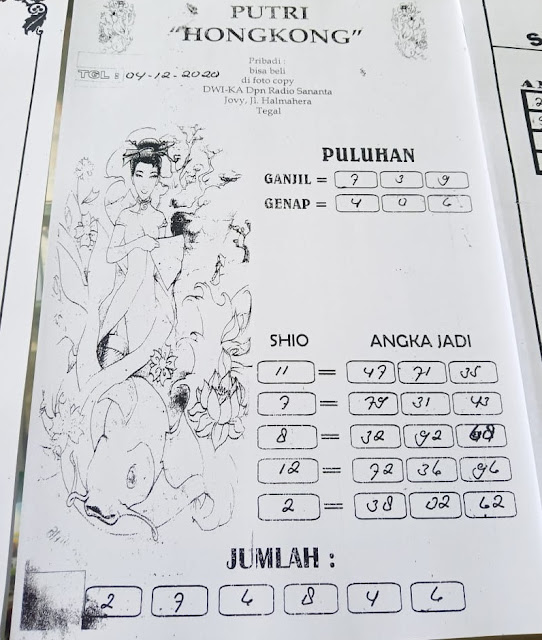 PUTRI
"HONGKONG"
Pribadi :
bisa beli
di foto copy
DWI-KA Dpn Radio Sananta
Jovy, Jl. Halmahera
Tegal
TGL : 04-12-2020
PULUHAN
GANJIL = 7 3 9
GENAP = 4 0 6
SHIO ANGKA JADI
11 = 47 71 35
7 = 79 31 43
8 = 32 92
12 = 72 36 96
2 = 38 02 62
JUMLAH :
2 7 6 8 4 6
S
A